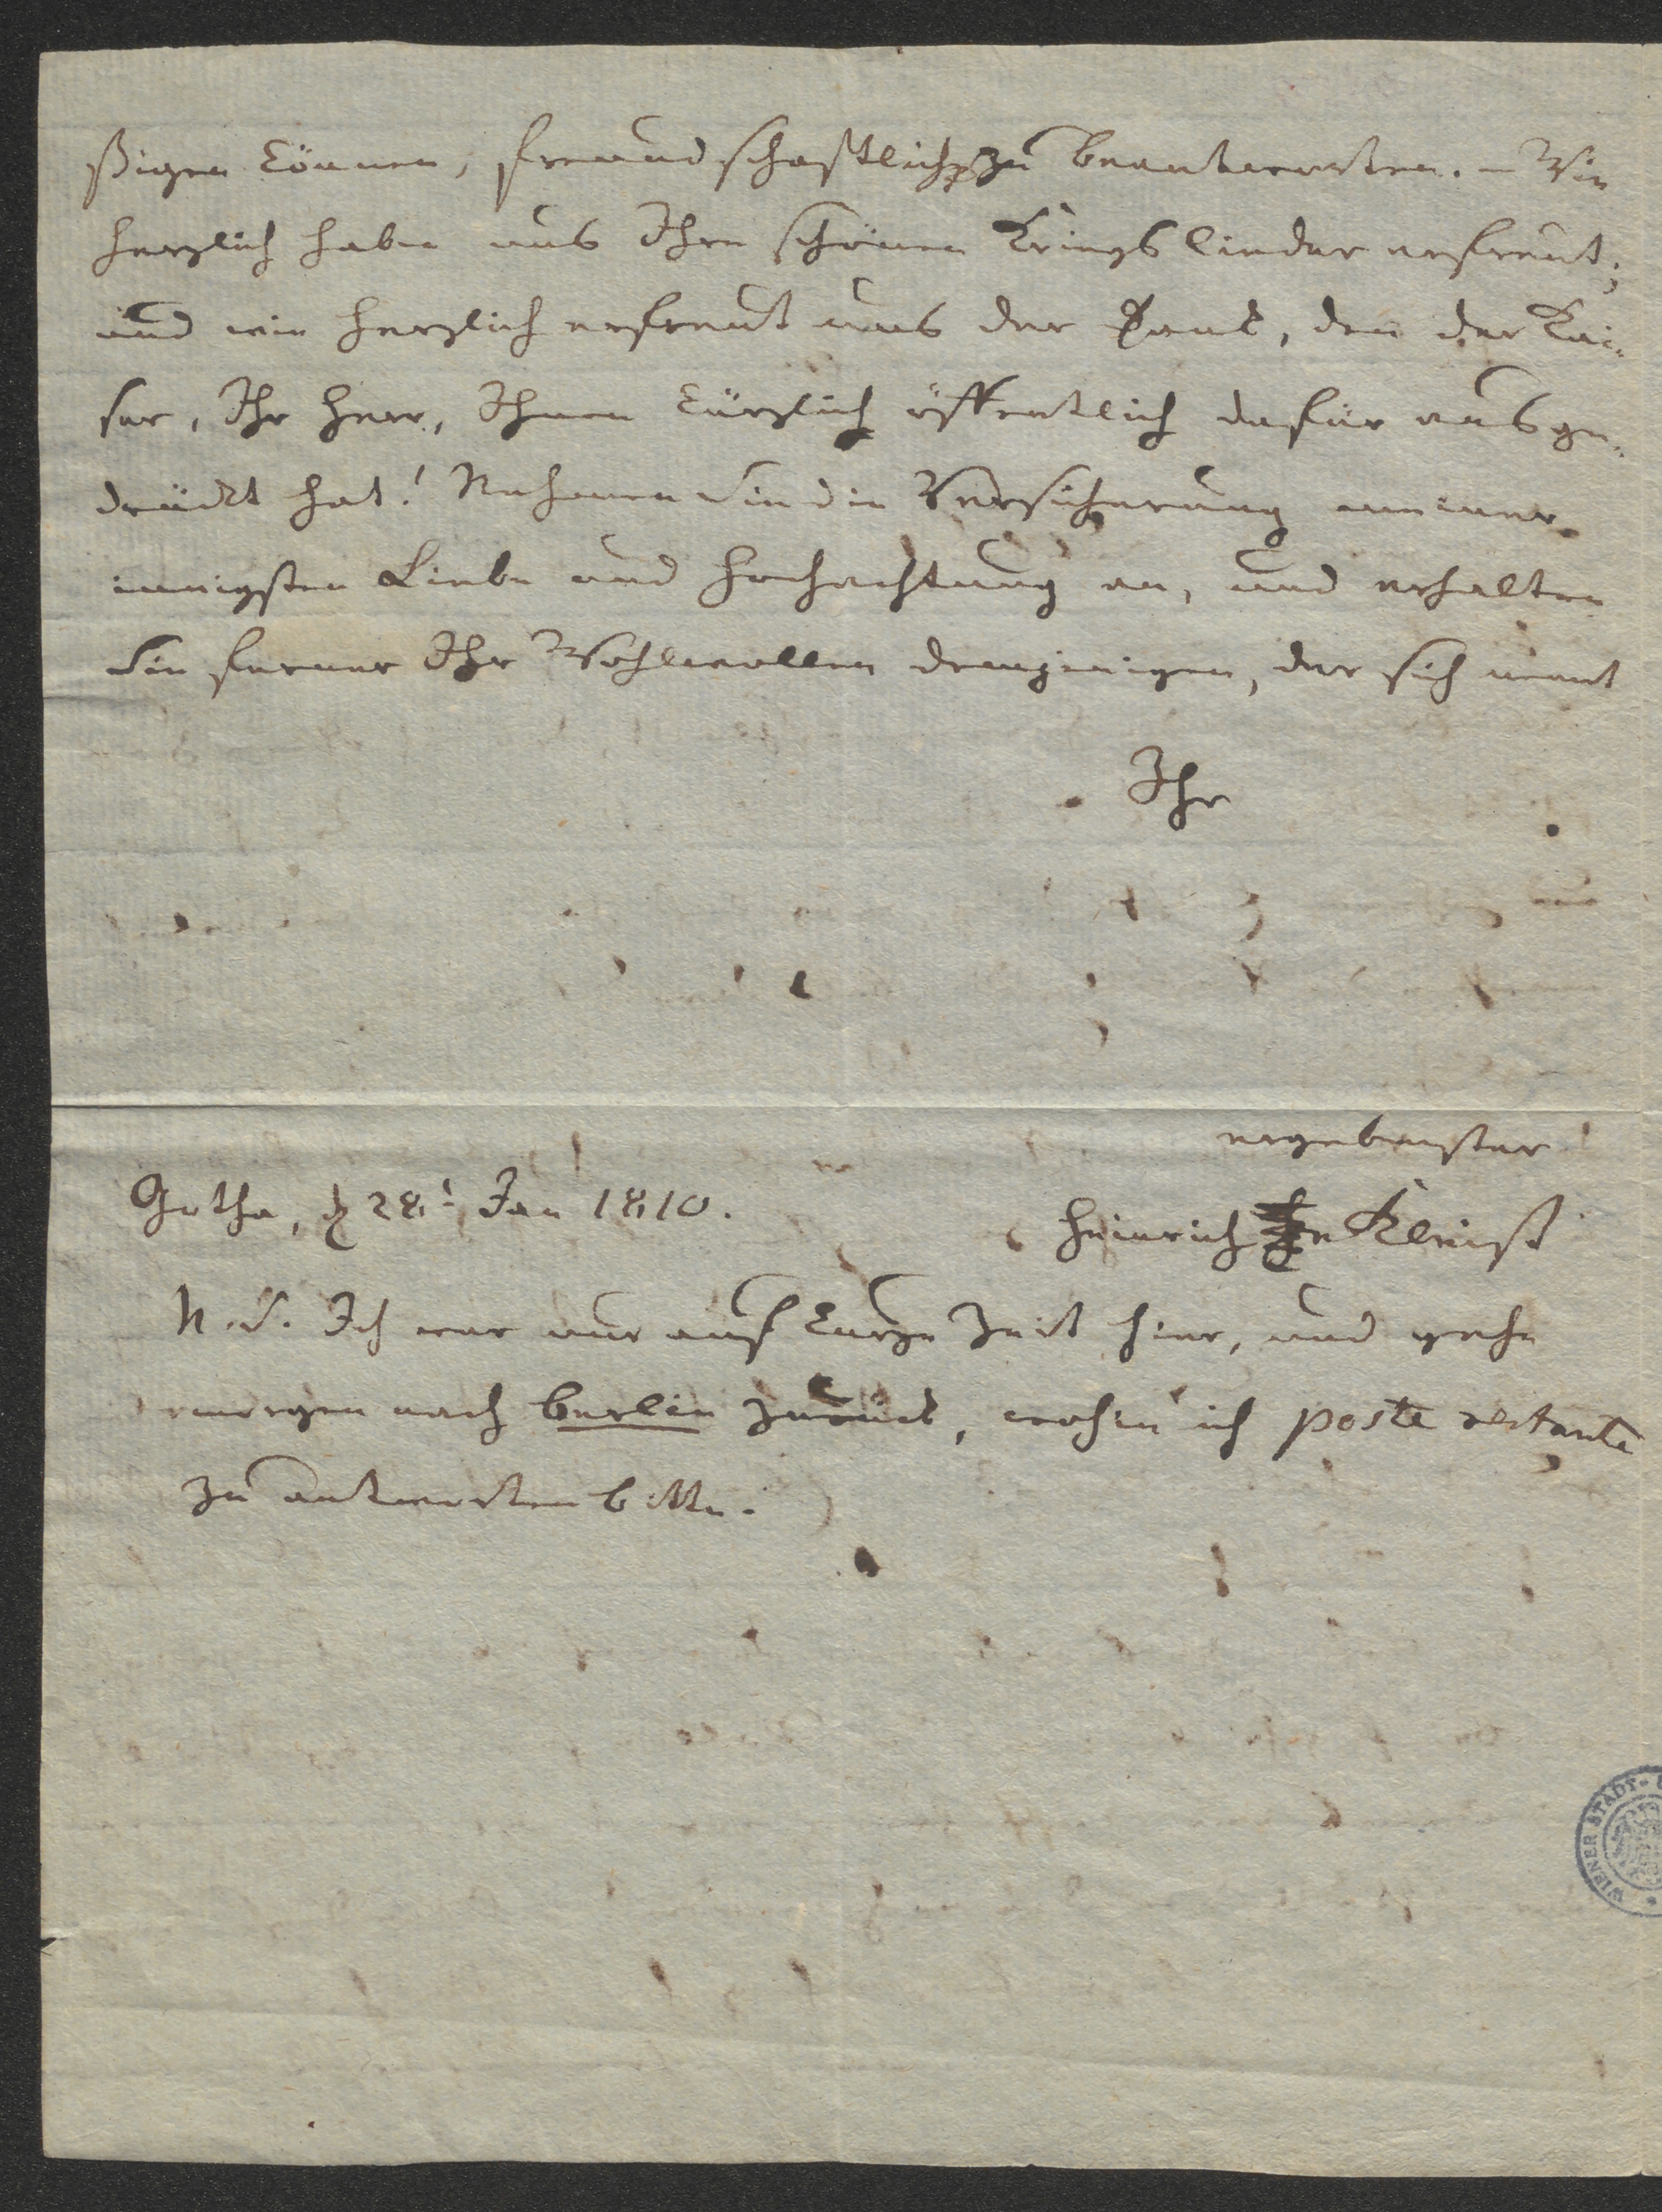 ßigen können, freundschaftlichst zu beantworten. – Wie
herzlich haben uns Ihre schönen Kriegslieder erfreut;
und wie herzlich erfreut uns der Dank, den der Kai-
ser, Ihr Herr, Ihnen kürzlich öffentlich dafür ausge-
drückt hat! Nehmen Sie die Versicherung meiner
innigsten Liebe und Hochachtung an, und erhalten
Sie ferner Ihr Wohlwollen demjenigen, der sich nennt
Ihr
ergebenster
Gotha, d 28t Jan 1810.
Heinrich v Kleist
N.S. Ich war nur auf kurze Zeit hier, und gehe
morgen nach Berlin zurück, wohin ich poste restante
zu antworten bitte.
WIENER STADT-